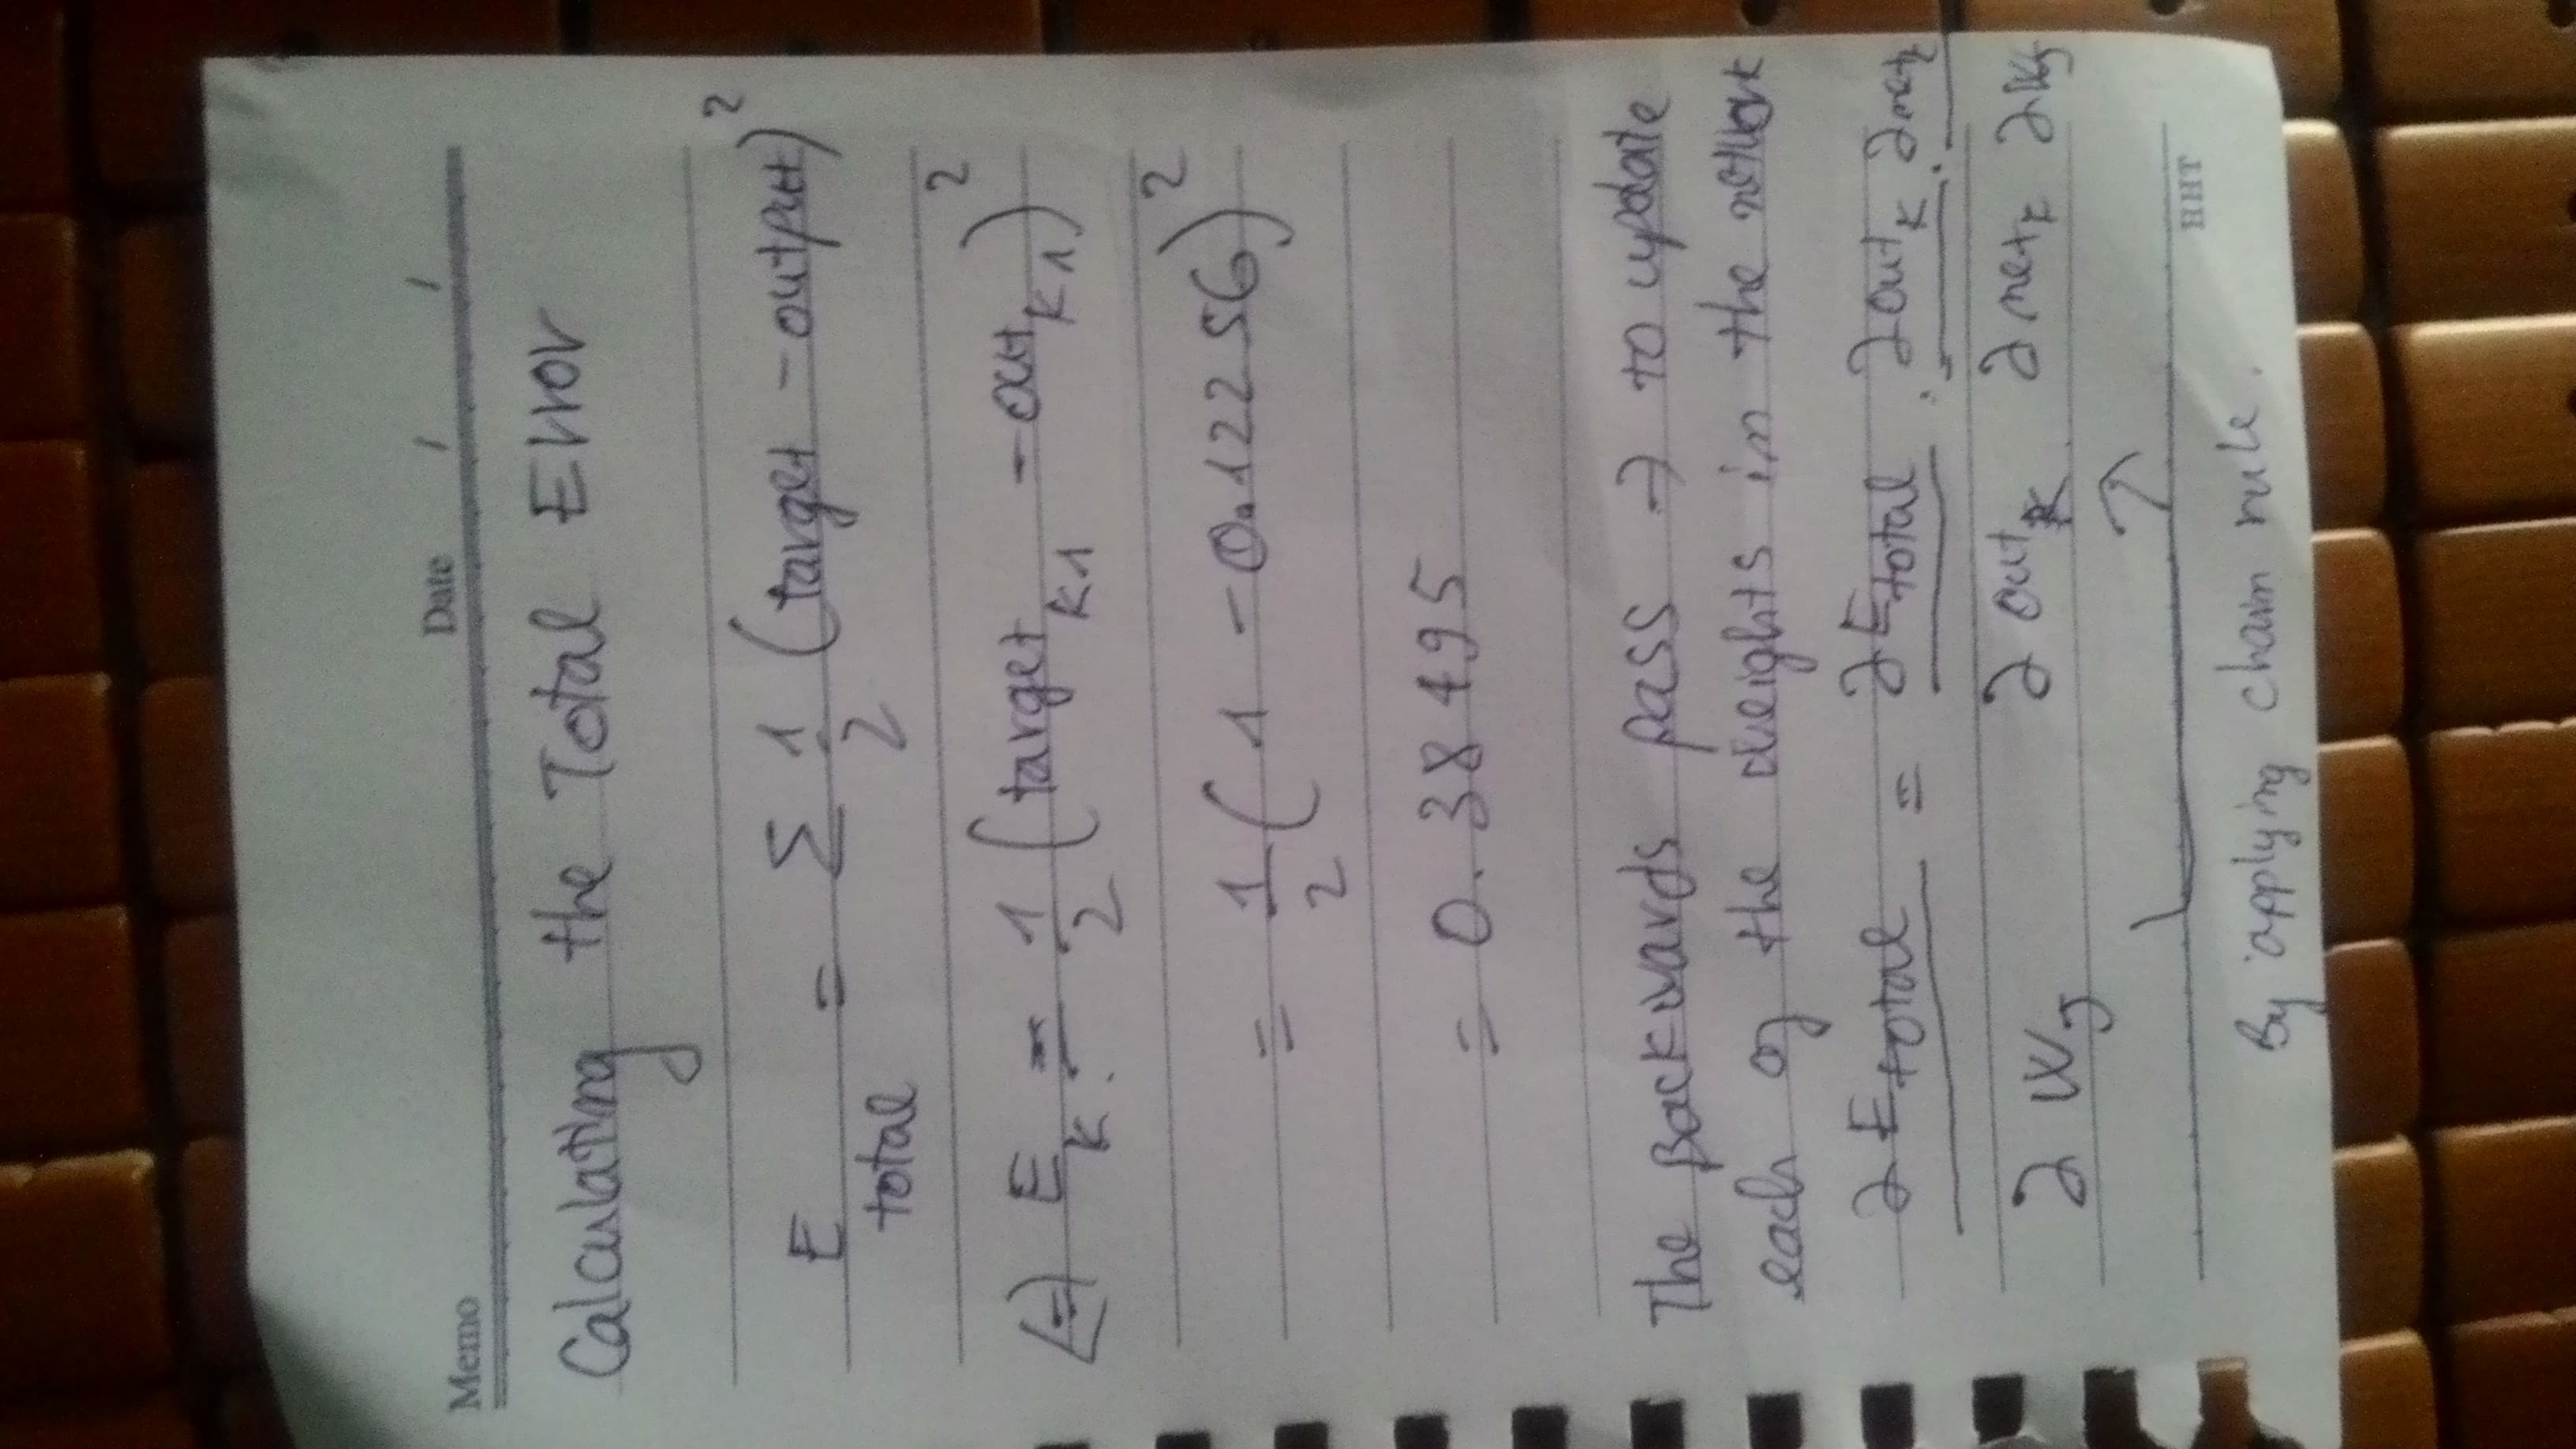 Memo Date / /
Calculating the Total Error
E total = Σ 1/2 (target - output)²
<=> E k = 1/2 (target k1 - out k1)²
= 1/2 (1 - 0.12256)²
= 0.38495
The Backwards pass → to update
each of the weights in the network
∂E total / ∂W5 = ∂E total / ∂out k . ∂out k / ∂net k . ∂net k / ∂W5
HHT
By applying chain rule.